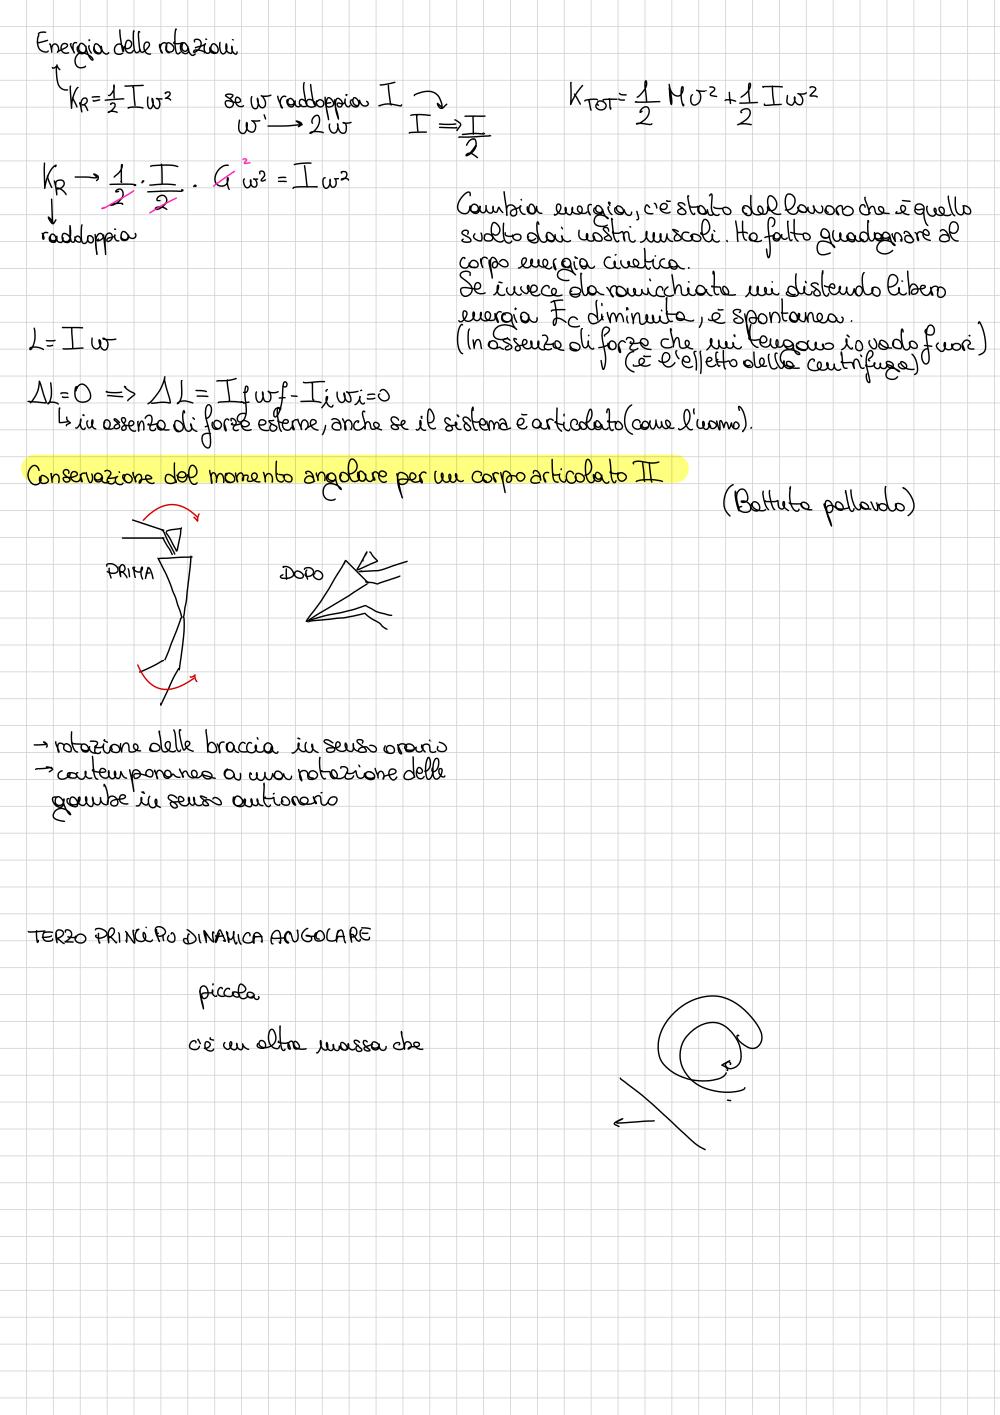 Energia delle rotazioni
K_R = 1/2 I ω²
se ω raddoppia I
ω → 2ω I ⇒ I/2
K_TOT = 1/2 M v² + 1/2 I ω²
K_R → 1/2 · I/2 · 4 2 ω² = I ω²
raddoppia
Cambia energia, c'è stato del lavoro che è quello
svolto dai nostri muscoli. Ha fatto guadagnare al
corpo energia cinetica.
Se invece da rannicchiata mi distendo libero
energia Ec diminuita, è spontanea.
(In assenza di forze che mi tengano io vado fuori)
(è l'effetto della centrifuga)
L = I ω
ΔL = 0 => ΔL = I_f ω_f - I_i ω_i = 0
↳ in assenza di forze esterne, anche se il sistema è articolato (come l'uomo).
Conservazione del momento angolare per un corpo articolato II
(Battuta pallavolo)
PRIMA
DOPO
→ rotazione delle braccia in senso orario
→ contemporanea a una rotazione delle
gambe in senso antiorario
TERZO PRINCIPIO DINAMICA ANGOLARE
piccola
c'è un altra massa che